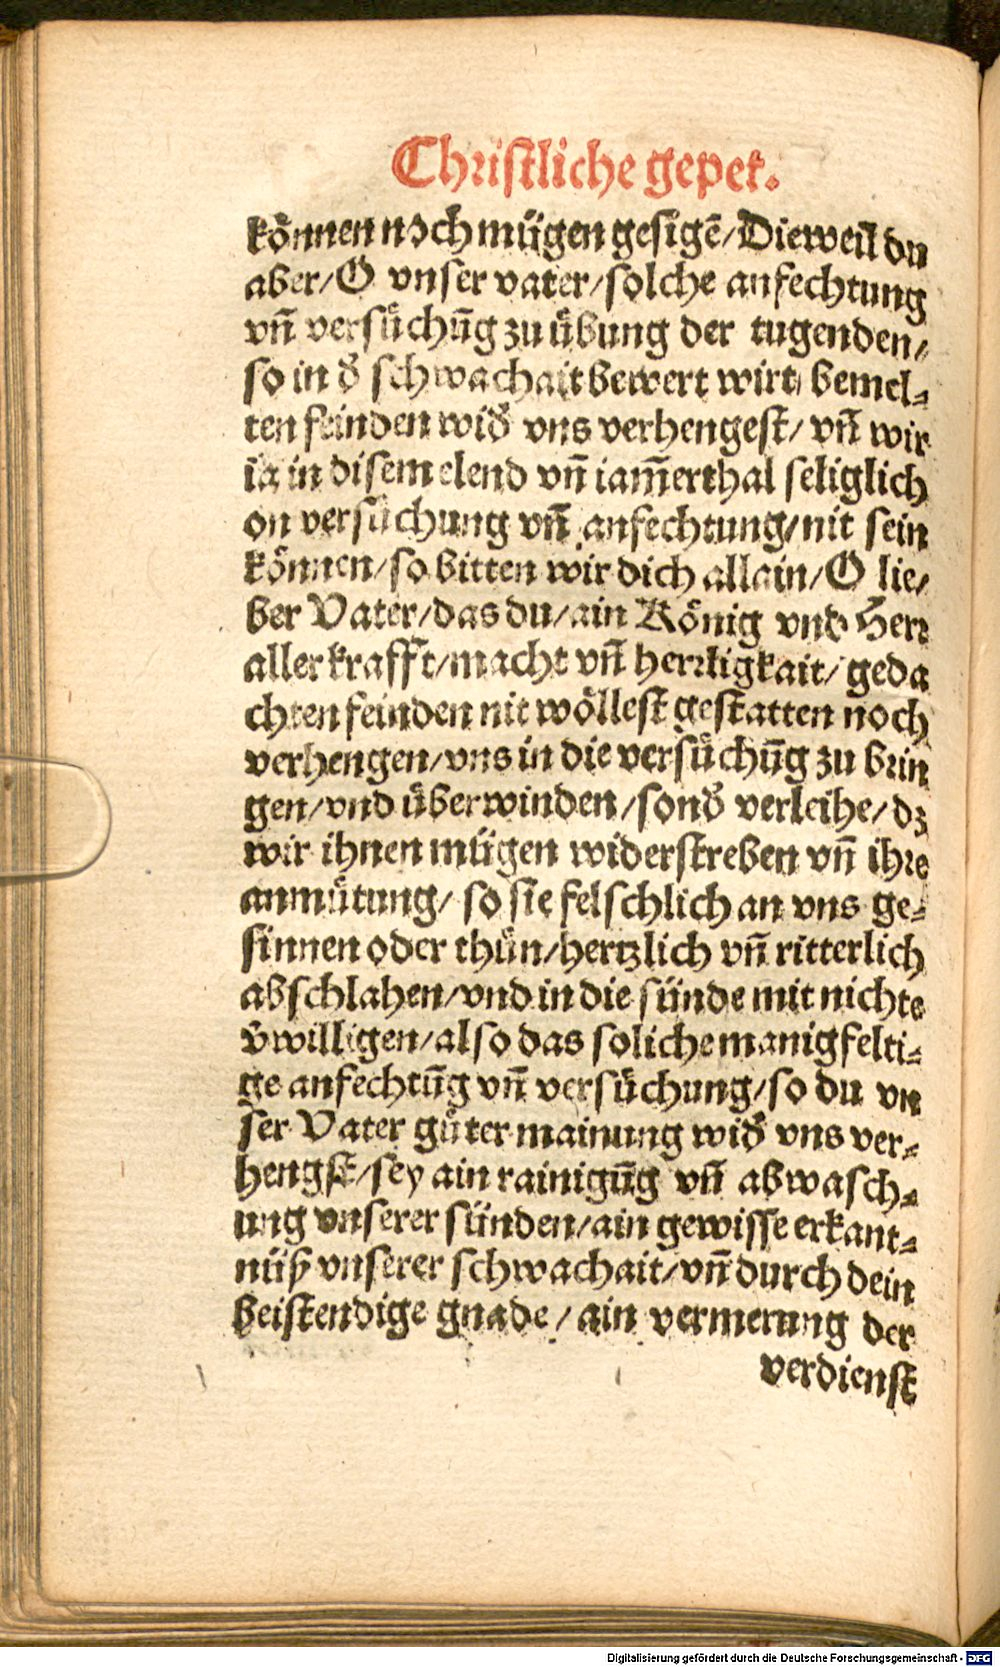 Christliche gepet.
können noch mügen gesigē/ Dieweil du
aber/ O vnser vater/ solche anfechtung
vñ versůchūg zu übung der tugenden/
so in d' schwachait bewert wirt/ bemel⸗
ten feinden wid' vns verhengest/ vñ wir
ia in disem elend vñ iam̄erthal seliglich
on versůchung vñ anfechtung/ nit sein
können/ so bitten wir dich allain/ O lie/
ber Vater/ das du/ ain König vnd Herr
aller krafft/ macht vñ herrligkait/ geda
chten feinden nit wöllest gestatten noch
verhengen/ vns in die versůchūg zu brin
gen/ vnd überwinden/ sond' verleihe/ dz
wir ihnen mügen widerstreben vñ ihre
anmůtung/ so sie felschlich an vns ge⸗
sinnen oder thůn/ hertzlich vñ ritterlich
abschlahen/ vnd in die sünde mit nichte
v̓willigen/ also das soliche manigfelti⸗
ge anfechtūg vñ versůchung/ so du vn
ser Vater gůter mainung wid' vns ver⸗
hengst/ sey ain rainigūg vñ abwasch⸗
ung vnserer sünden/ ain gewisse erkant⸗
nüß vnserer schwachait/ vñ durch dein
beistendige gnade/ ain vermerung der
verdienst
Digitalisierung gefördert durch die Deutsche Forschungsgemeinschaft - DFG